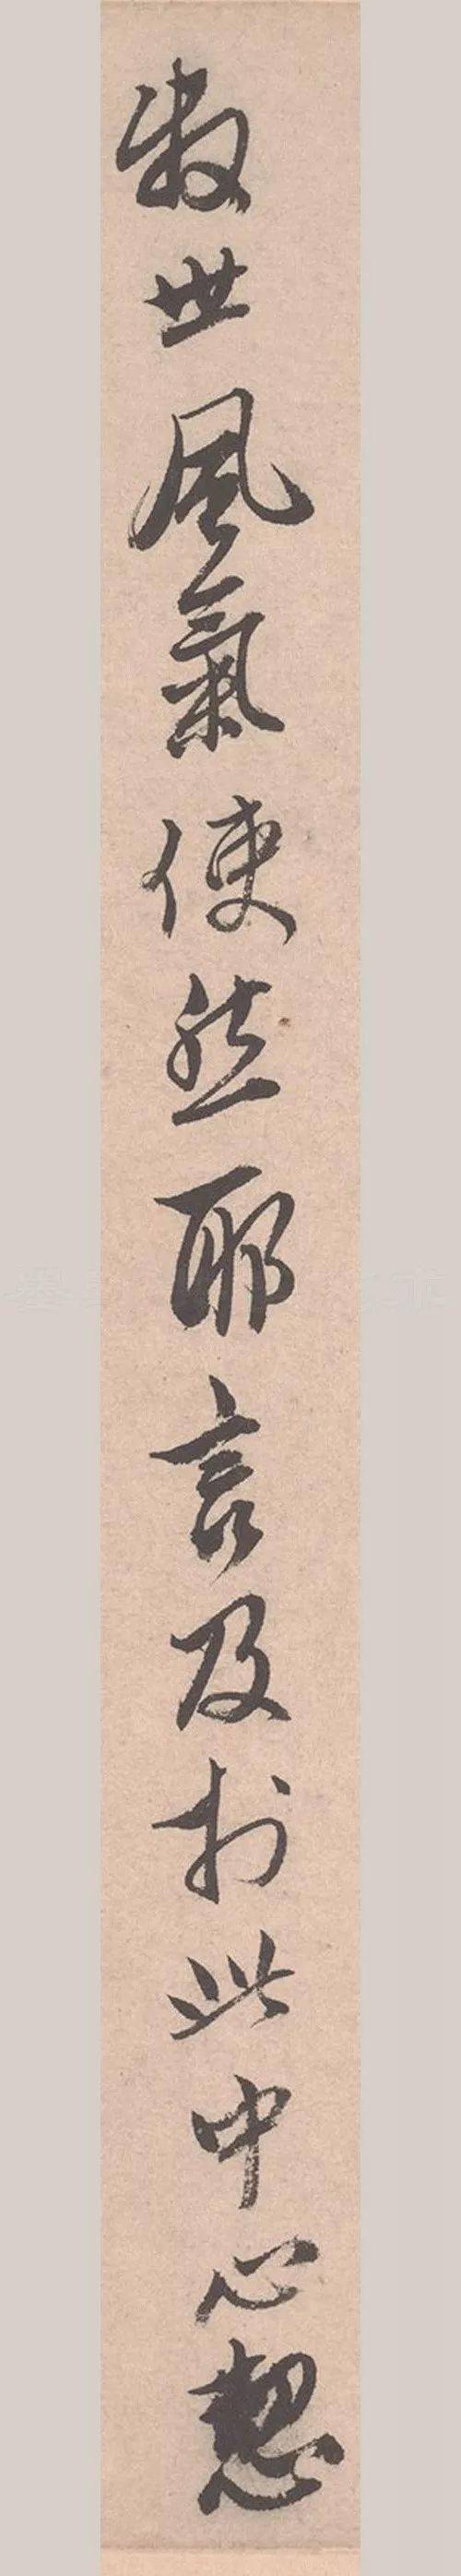 世風氣使然耶言及於此中心愁